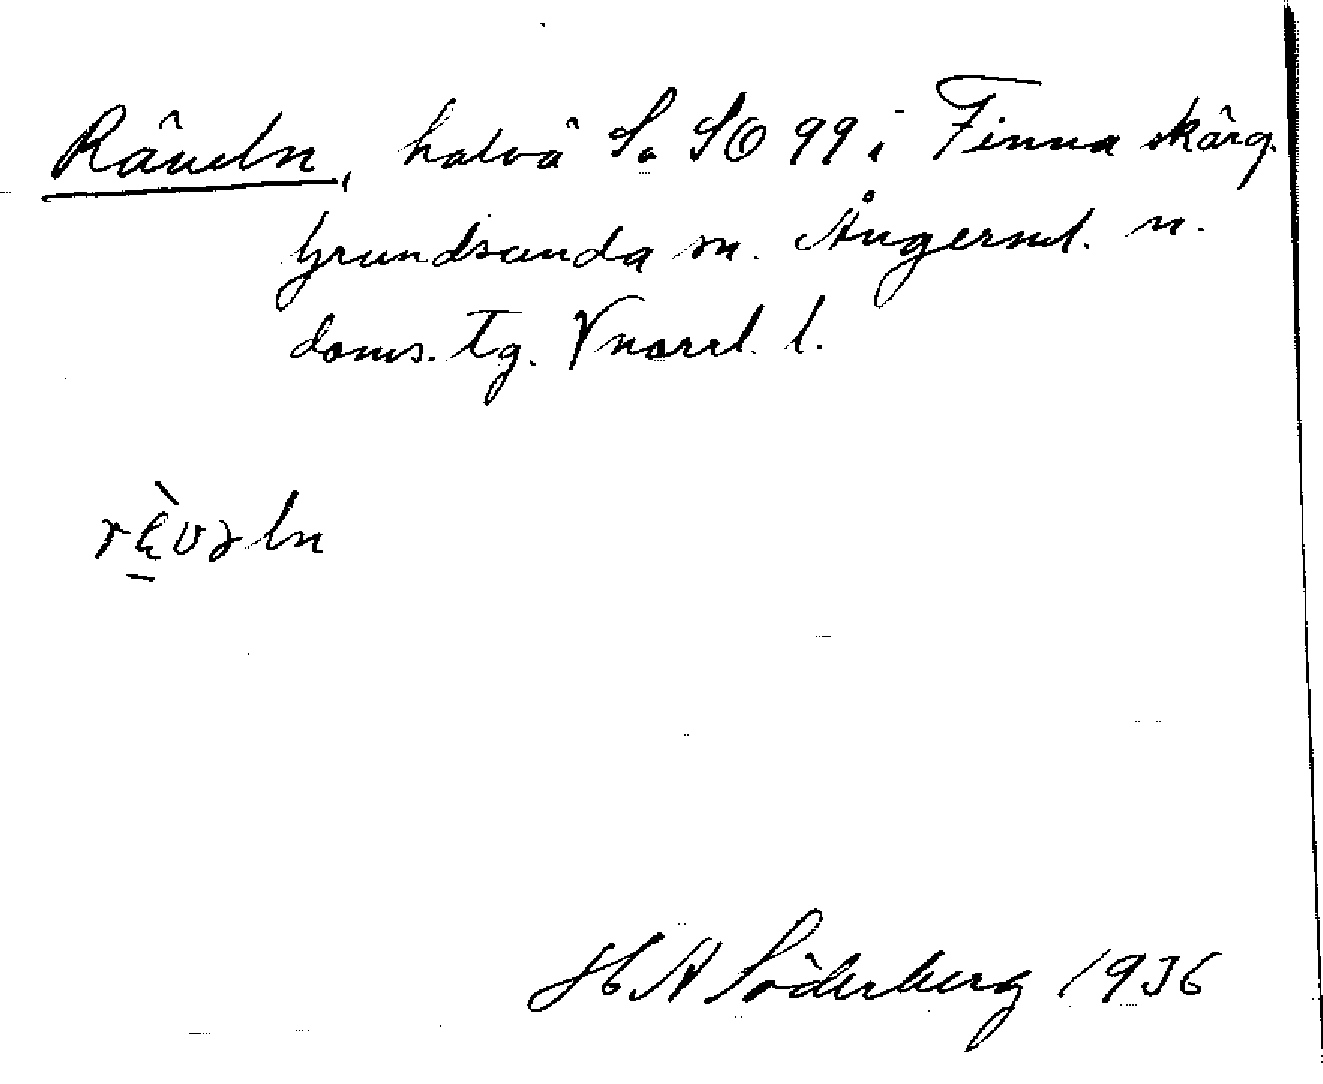 Räveln, halvö S. SO 99 i Finna skärg.
Grundsunda sn. Ångerml. n.
doms. tg. Vnorrl. l.
rɛ̀vəln
H A Söderberg 1936